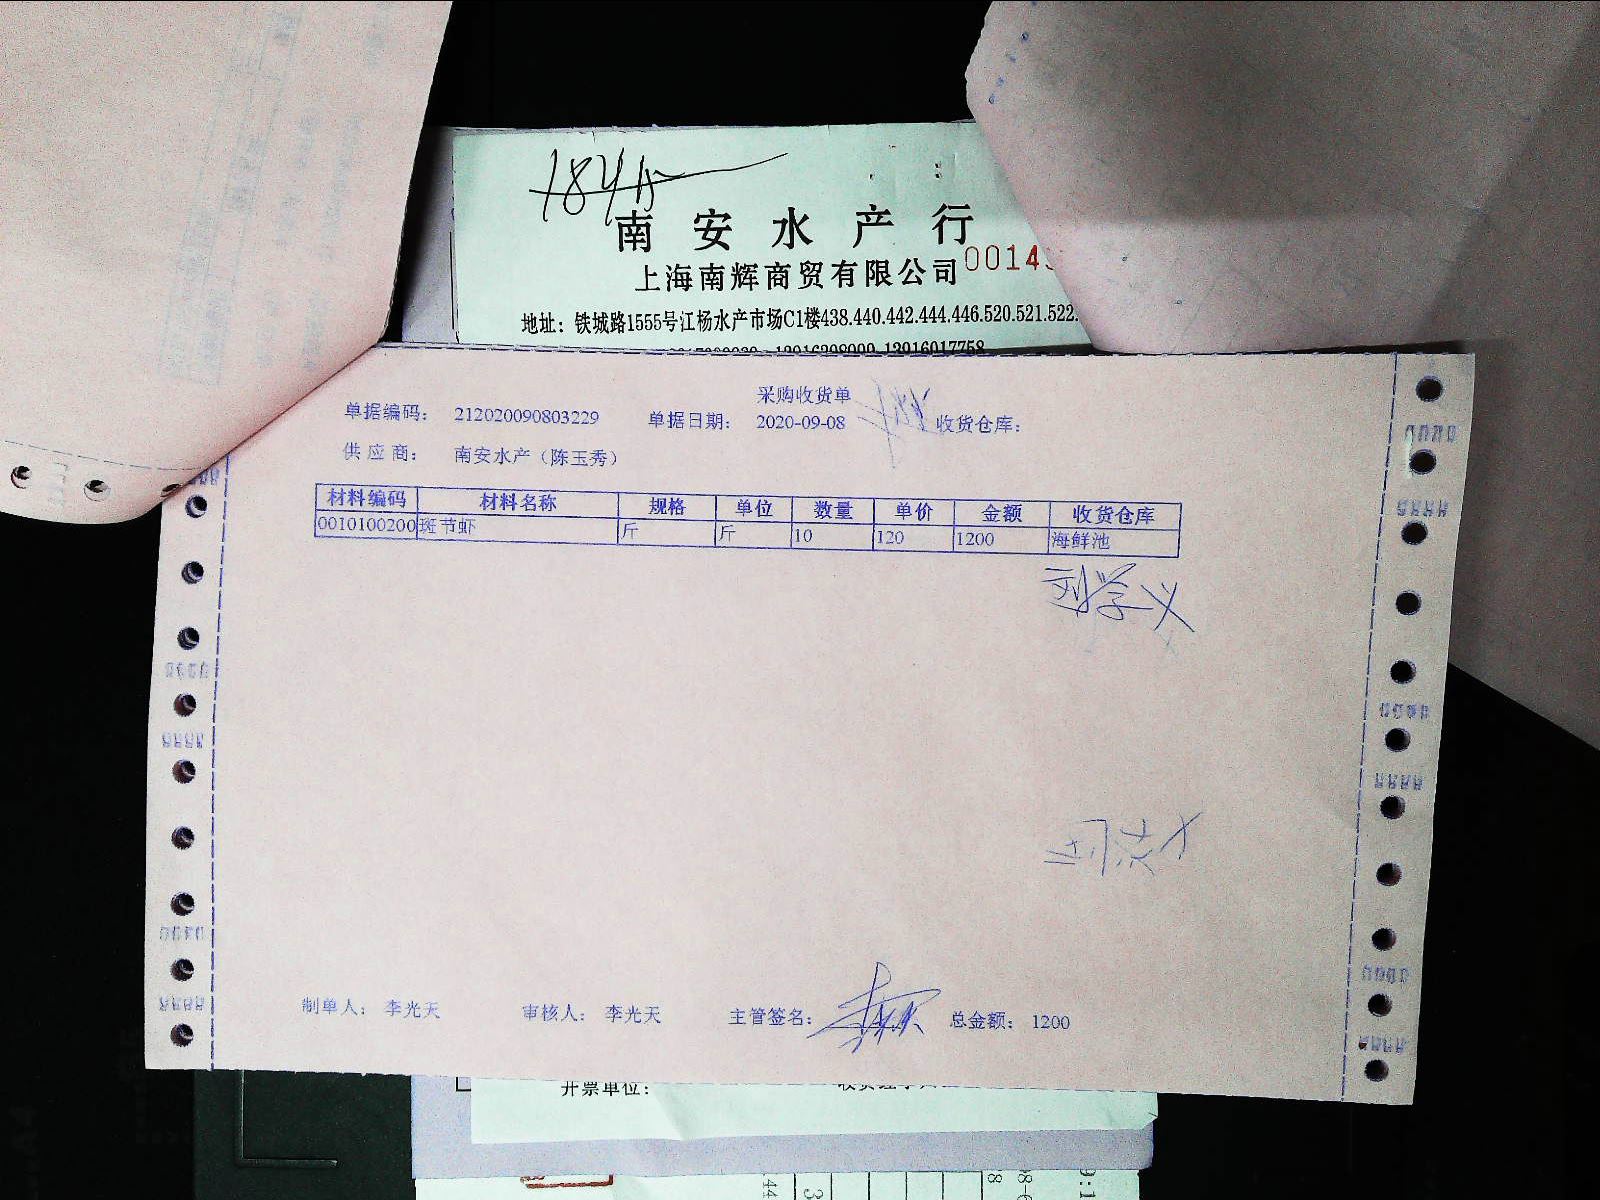 南安水产行
上海南辉商贸有限公司
地址：铁城路1555号江杨水产市场C1楼438.440.442.444.446.520.521.522.
采购收货单
单据编码： 212020090803229 单据日期： 2020-09-08 收货仓库：
供应商： 南安水产（陈玉秀）
材料编码 材料名称 规格 单位 数量 单价 金额 收货仓库
0010100200 斑节虾 斤 斤 10 120 1200 海鲜池
刘学义
制单人： 李光天 审核人： 李光天 主管签名： 总金额： 1200
开票单位：